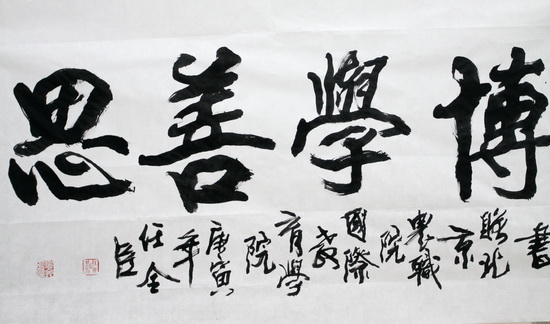 博學善思
書
贈北
京
農職
院
國際
教
育學
院
庚寅
年
任全